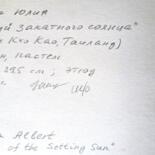 а Юлия
й Закатного солнца"
Кхо Као, Таиланд)
н, пастель
295 см; этюд
а Albert
of the Setting Sun"